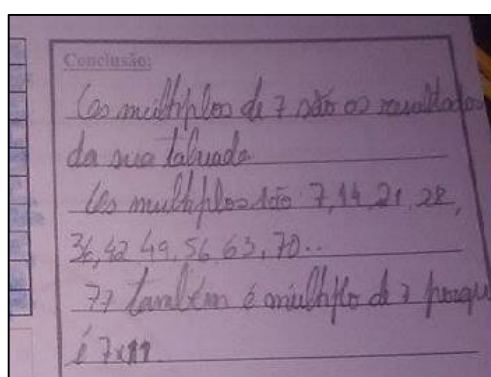 Conclusão:
Os múltiplos de 7 são os resultados
da sua tabuada
Os multiplos são 7, 14, 21, 28,
36, 42, 49, 56, 63, 70..
77 também é múltiplo de 7 porque
é 7x11.